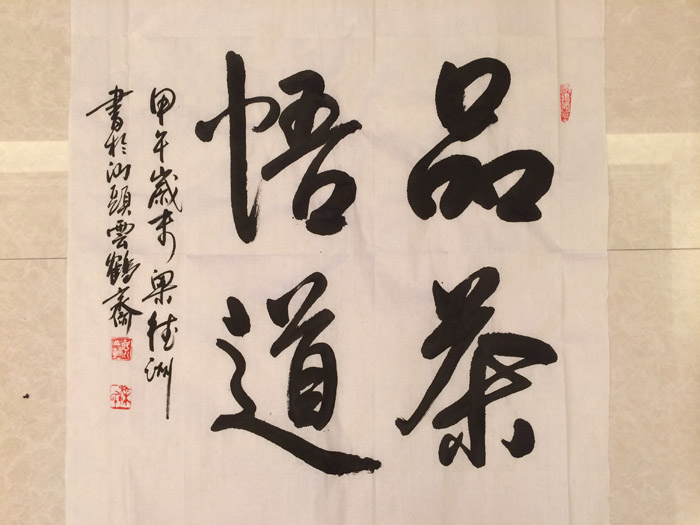 品茶
悟道
甲午歲末梁德洲
書於汕頭雲鶴齋